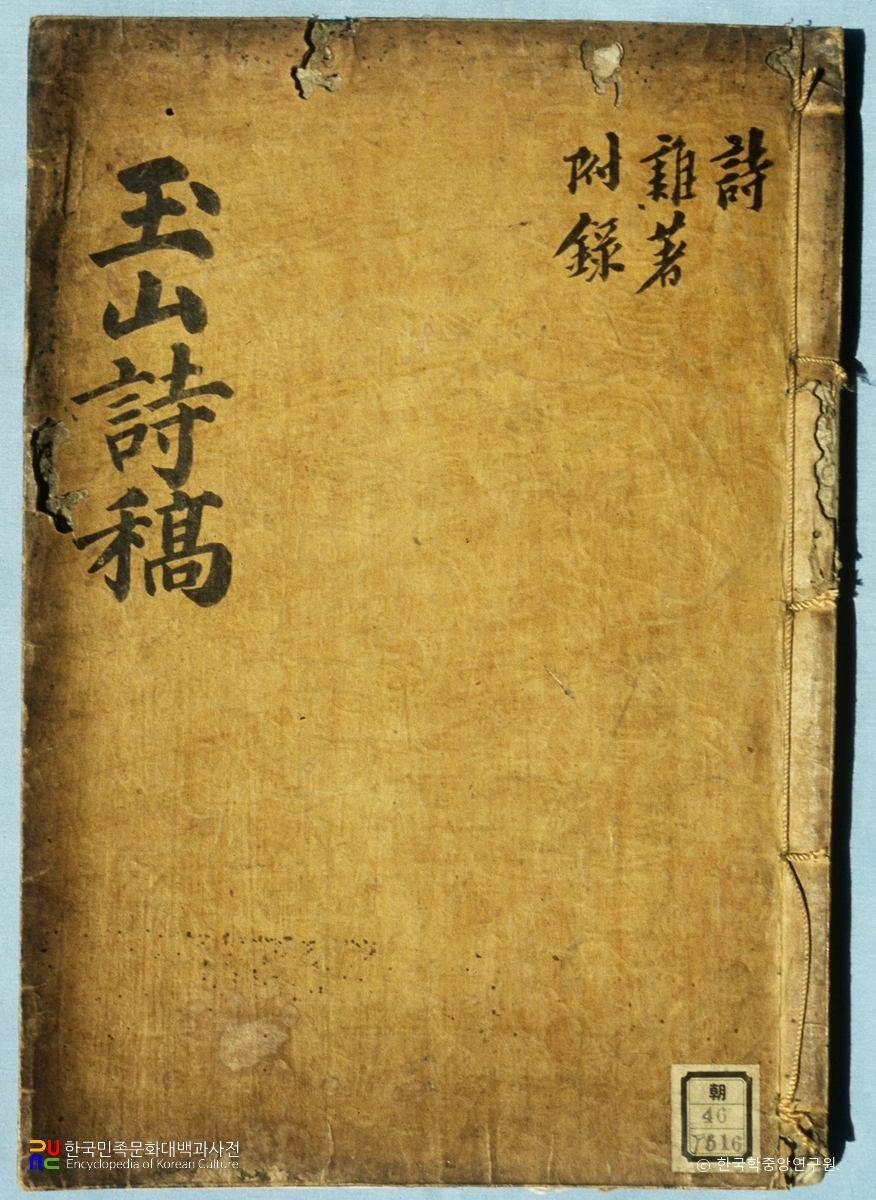 詩
雜著
附錄
玉山詩稿
朝
46
한국민족문화대백과사전
Encyclopedia of Korean Culture
© 한국학중앙연구원